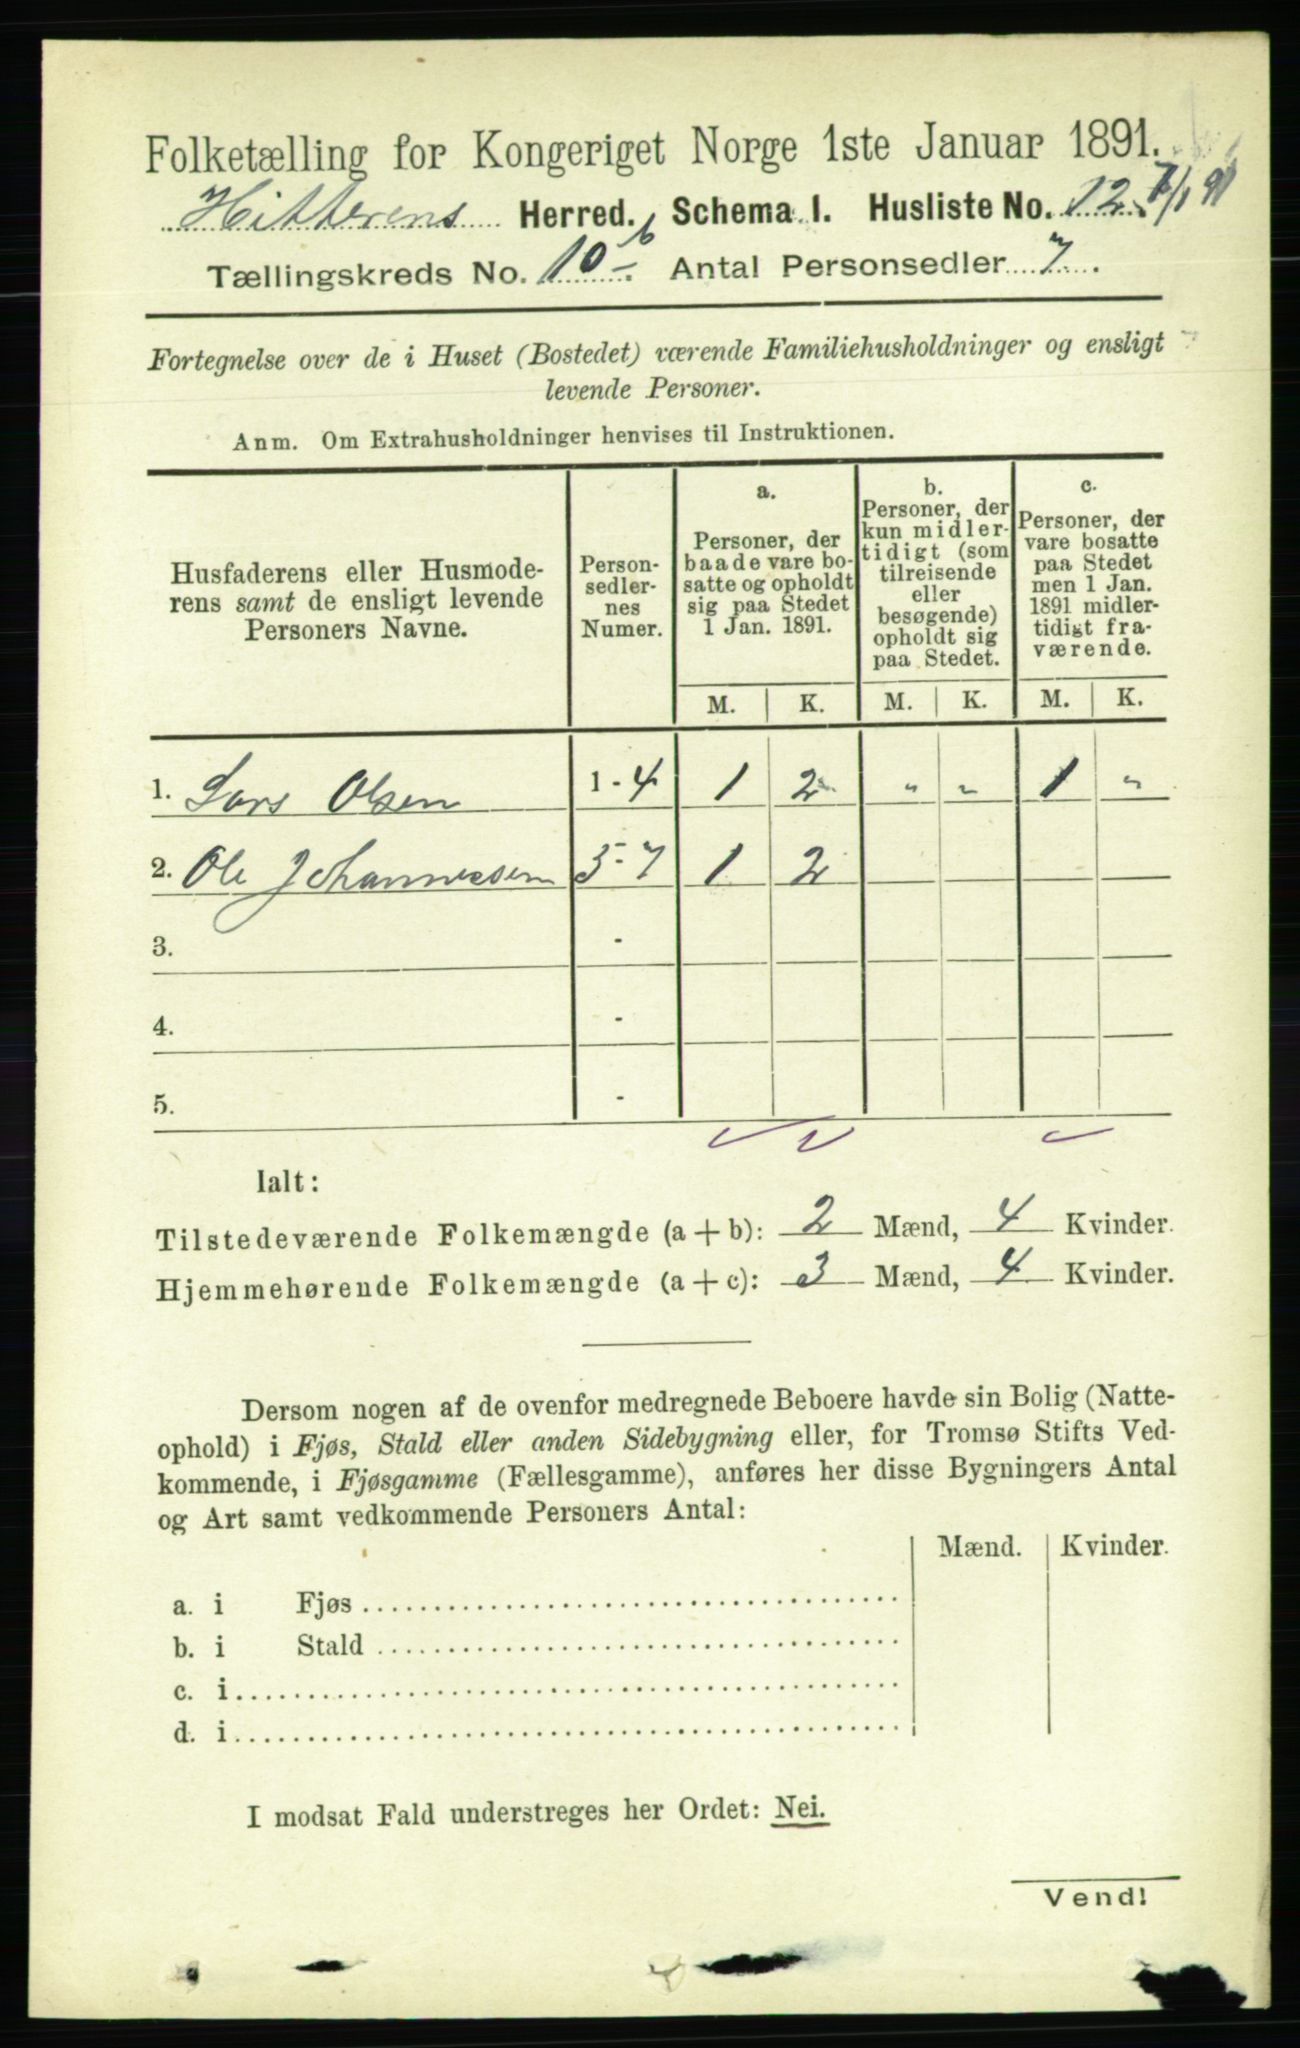 Folketælling for Kongeriget Norge 1ste Januar 1891.
Hitterens Herred. Schema I. Husliste No. 12. 7/1 91
Tællingskreds No. 10 b. Antal Personsedler 7.
Fortegnelse over de i Huset (Bostedet) værende Familiehusholdninger og ensligt
levende Personer.
Anm. Om Extrahusholdninger henvises til Instruktionen.
Husfaderens eller Husmode-
rens samt de ensligt levende
Personers Navne.
Person-
sedler-
nes
Numer.
a.
Personer, der
baade vare bo-
satte og opholdt
sig paa Stedet
1 Jan. 1891.
b.
Personer, der
kun midler-
tidigt (som
tilreisende
eller
besøgende)
opholdt sig
paa Stedet.
c.
Personer, der
vare bosatte
paa Stedet
men 1 Jan.
1891 midler-
tidigt fra-
værende.
M. K. M. K. M. K.
1. Lars Olsen 1 - 4 1 2 " " 1 "
2. Ole Johannesen 5 - 7 1 2
3. -
4. -
5. -
Ialt:
Tilstedeværende Folkemængde (a + b): 2 Mænd, 4 Kvinder.
Hjemmehørende Folkemængde (a + c): 3 Mænd, 4 Kvinder.
Dersom nogen af de ovenfor medregnede Beboere havde sin Bolig (Natte-
ophold) i Fjøs, Stald eller anden Sidebygning eller, for Tromsø Stifts Ved-
kommende, i Fjøsgamme (Fællesgamme), anføres her disse Bygningers Antal
og Art samt vedkommende Personers Antal:
Mænd. Kvinder.
a. i Fjøs
b. i Stald
c. i
d. i
I modsat Fald understreges her Ordet: Nei.
Vend!